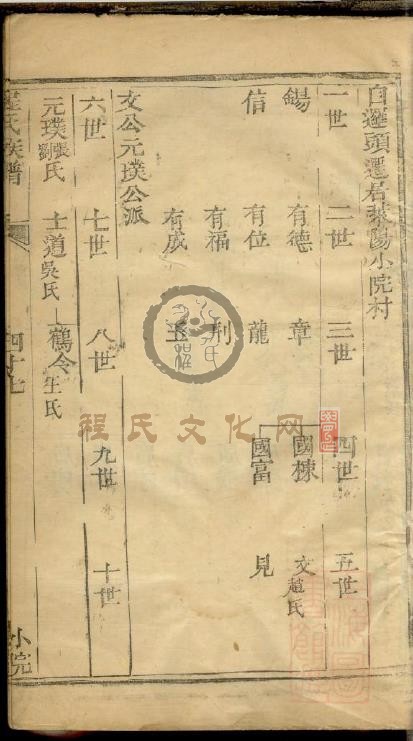 自邏頭遷居萊陽小院村
一世 二世 三世 四世 五世
錫 有德 章 國棟 文趙氏
信 有位 龍 國富 見
有福 荆
有成 玉
文公元璞公派
六世 七世 八世 九世 十世
元璞張氏劉氏 士道吳氏 鶴令王氏
程氏族譜
小院
程氏文化网